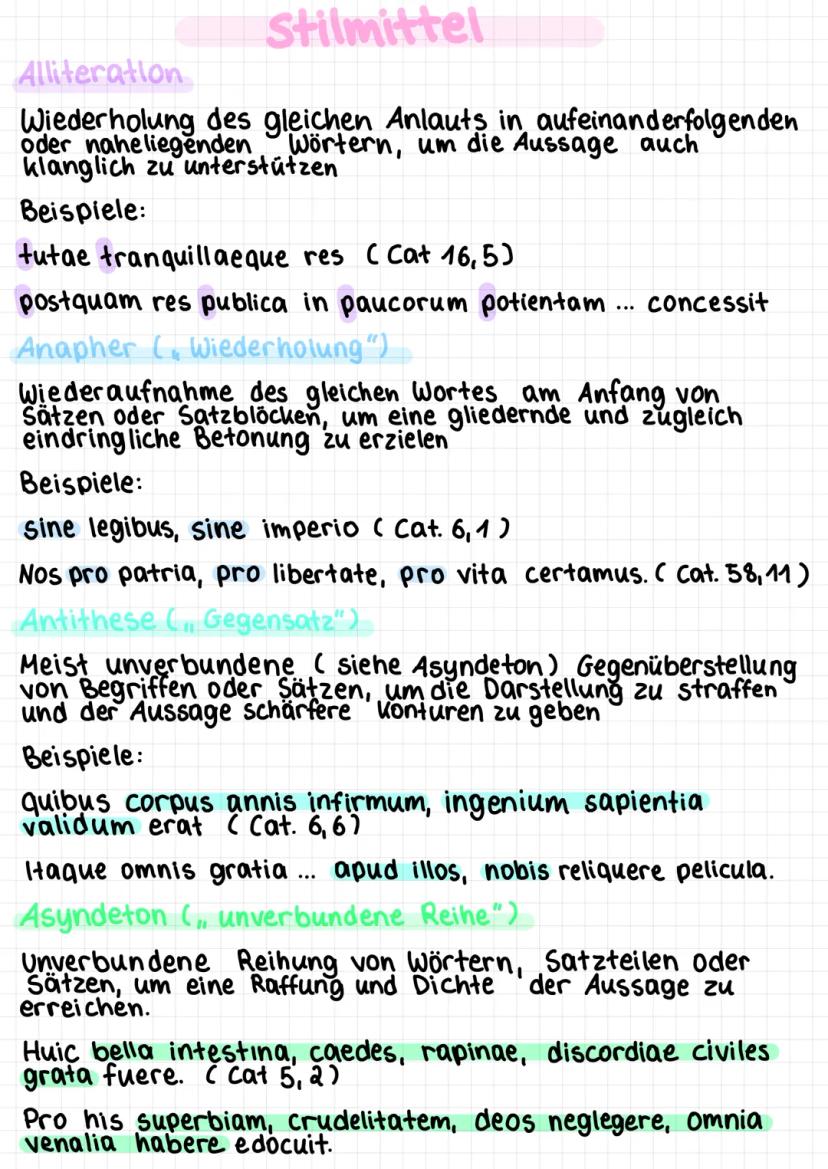 Stilmittel
Alliteration
Wiederholung des gleichen Anlauts in aufeinanderfolgenden
oder naheliegenden Wörtern, um die Aussage auch
klanglich zu unterstützen
Beispiele:
tutae tranquillaeque res (Cat 16,5)
postquam res publica in paucorum potientam ... concessit
Anapher („Wiederholung")
Wiederaufnahme des gleichen Wortes am Anfang von
Sätzen oder Satzblöcken, um eine gliedernde und zugleich
eindringliche Betonung zu erzielen
Beispiele:
sine legibus, sine imperio (Cat. 6,1)
Nos pro patria, pro libertate, pro vita certamus. (Cat. 58,11)
Antithese („Gegensatz")
Meist unverbundene (siehe Asyndeton) Gegenüberstellung
von Begriffen oder Sätzen, um die Darstellung zu straffen
und der Aussage schärfere Konturen zu geben
Beispiele:
Quibus corpus annis infirmum, ingenium sapientia
validum erat (Cat. 6,6)
Itaque omnis gratia ... apud illos, nobis reliquere pelicula.
Asyndeton („unverbundene Reihe")
Unverbundene Reihung von Wörtern, Satzteilen oder
Sätzen, um eine Raffung und Dichte der Aussage zu
erreichen.
Huic bella intestina, caedes, rapinae, discordiae civiles
grata fuere. (Cat 5,2)
Pro his superbiam, crudelitatem, deos neglegere, omnia
venalia habere edocuit.